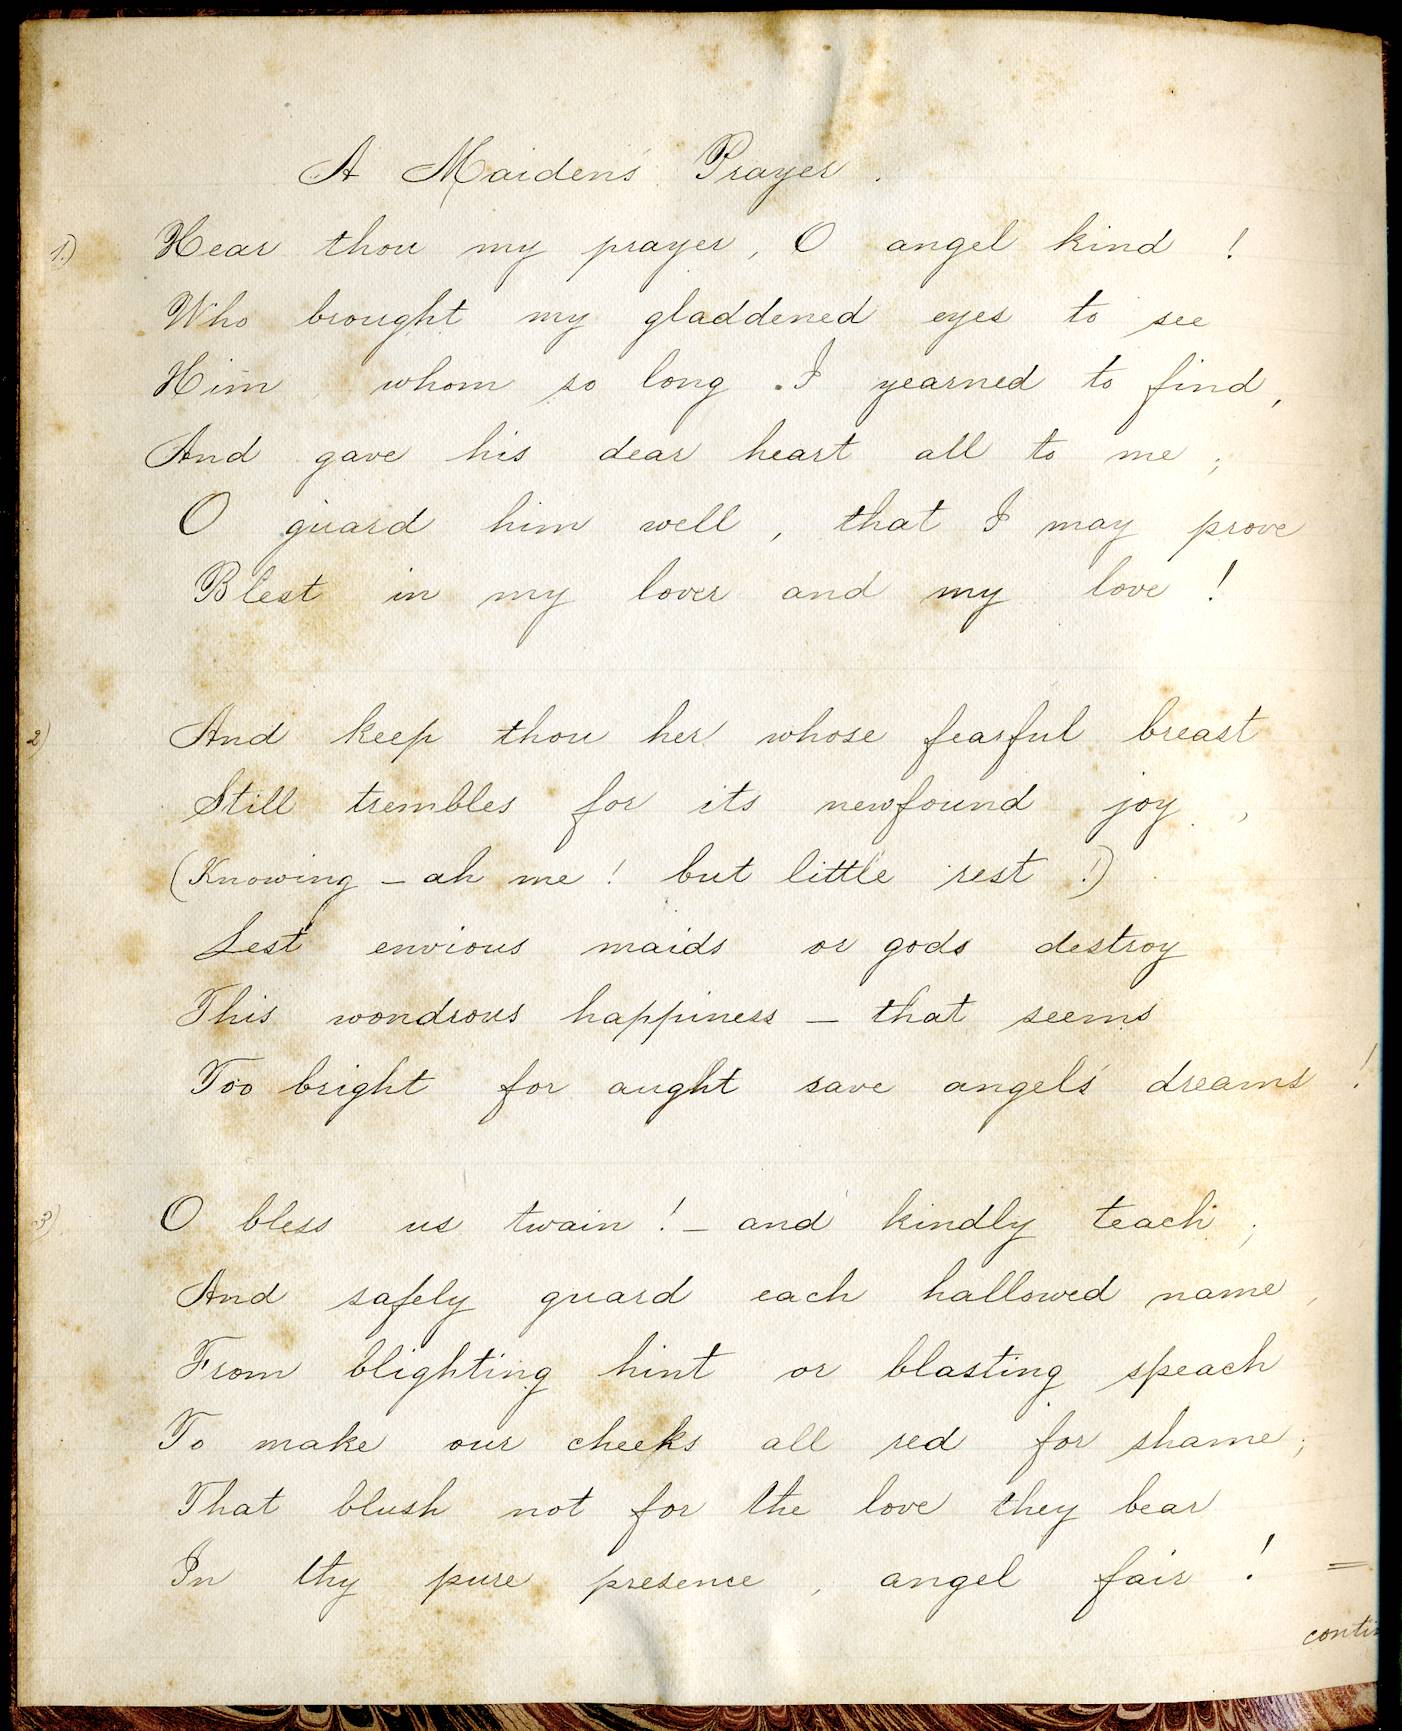 A Maiden's Prayer.
1.) Hear thou my prayer, O angel kind!
Who brought my gladdened eyes to see
Him whom so long I yearned to find,
And gave his dear heart all to me;
O guard him well, that I may prove
Blest in my lover and my love!
2) And keep thou her whose fearful breast
Still trembles for its newfound joy,
(Knowing – ah me! but little rest!)
Lest envious maids or gods destroy
This wondrous happiness – that seems
Too bright for aught save angels' dreams!
3) O bless us twain! – and kindly teach;
And safely guard each hallowed name,
From blighting hint or blasting speach
To make our cheeks all red for shame;
That blush not for the love they bear
In thy pure presence, angel fair! =